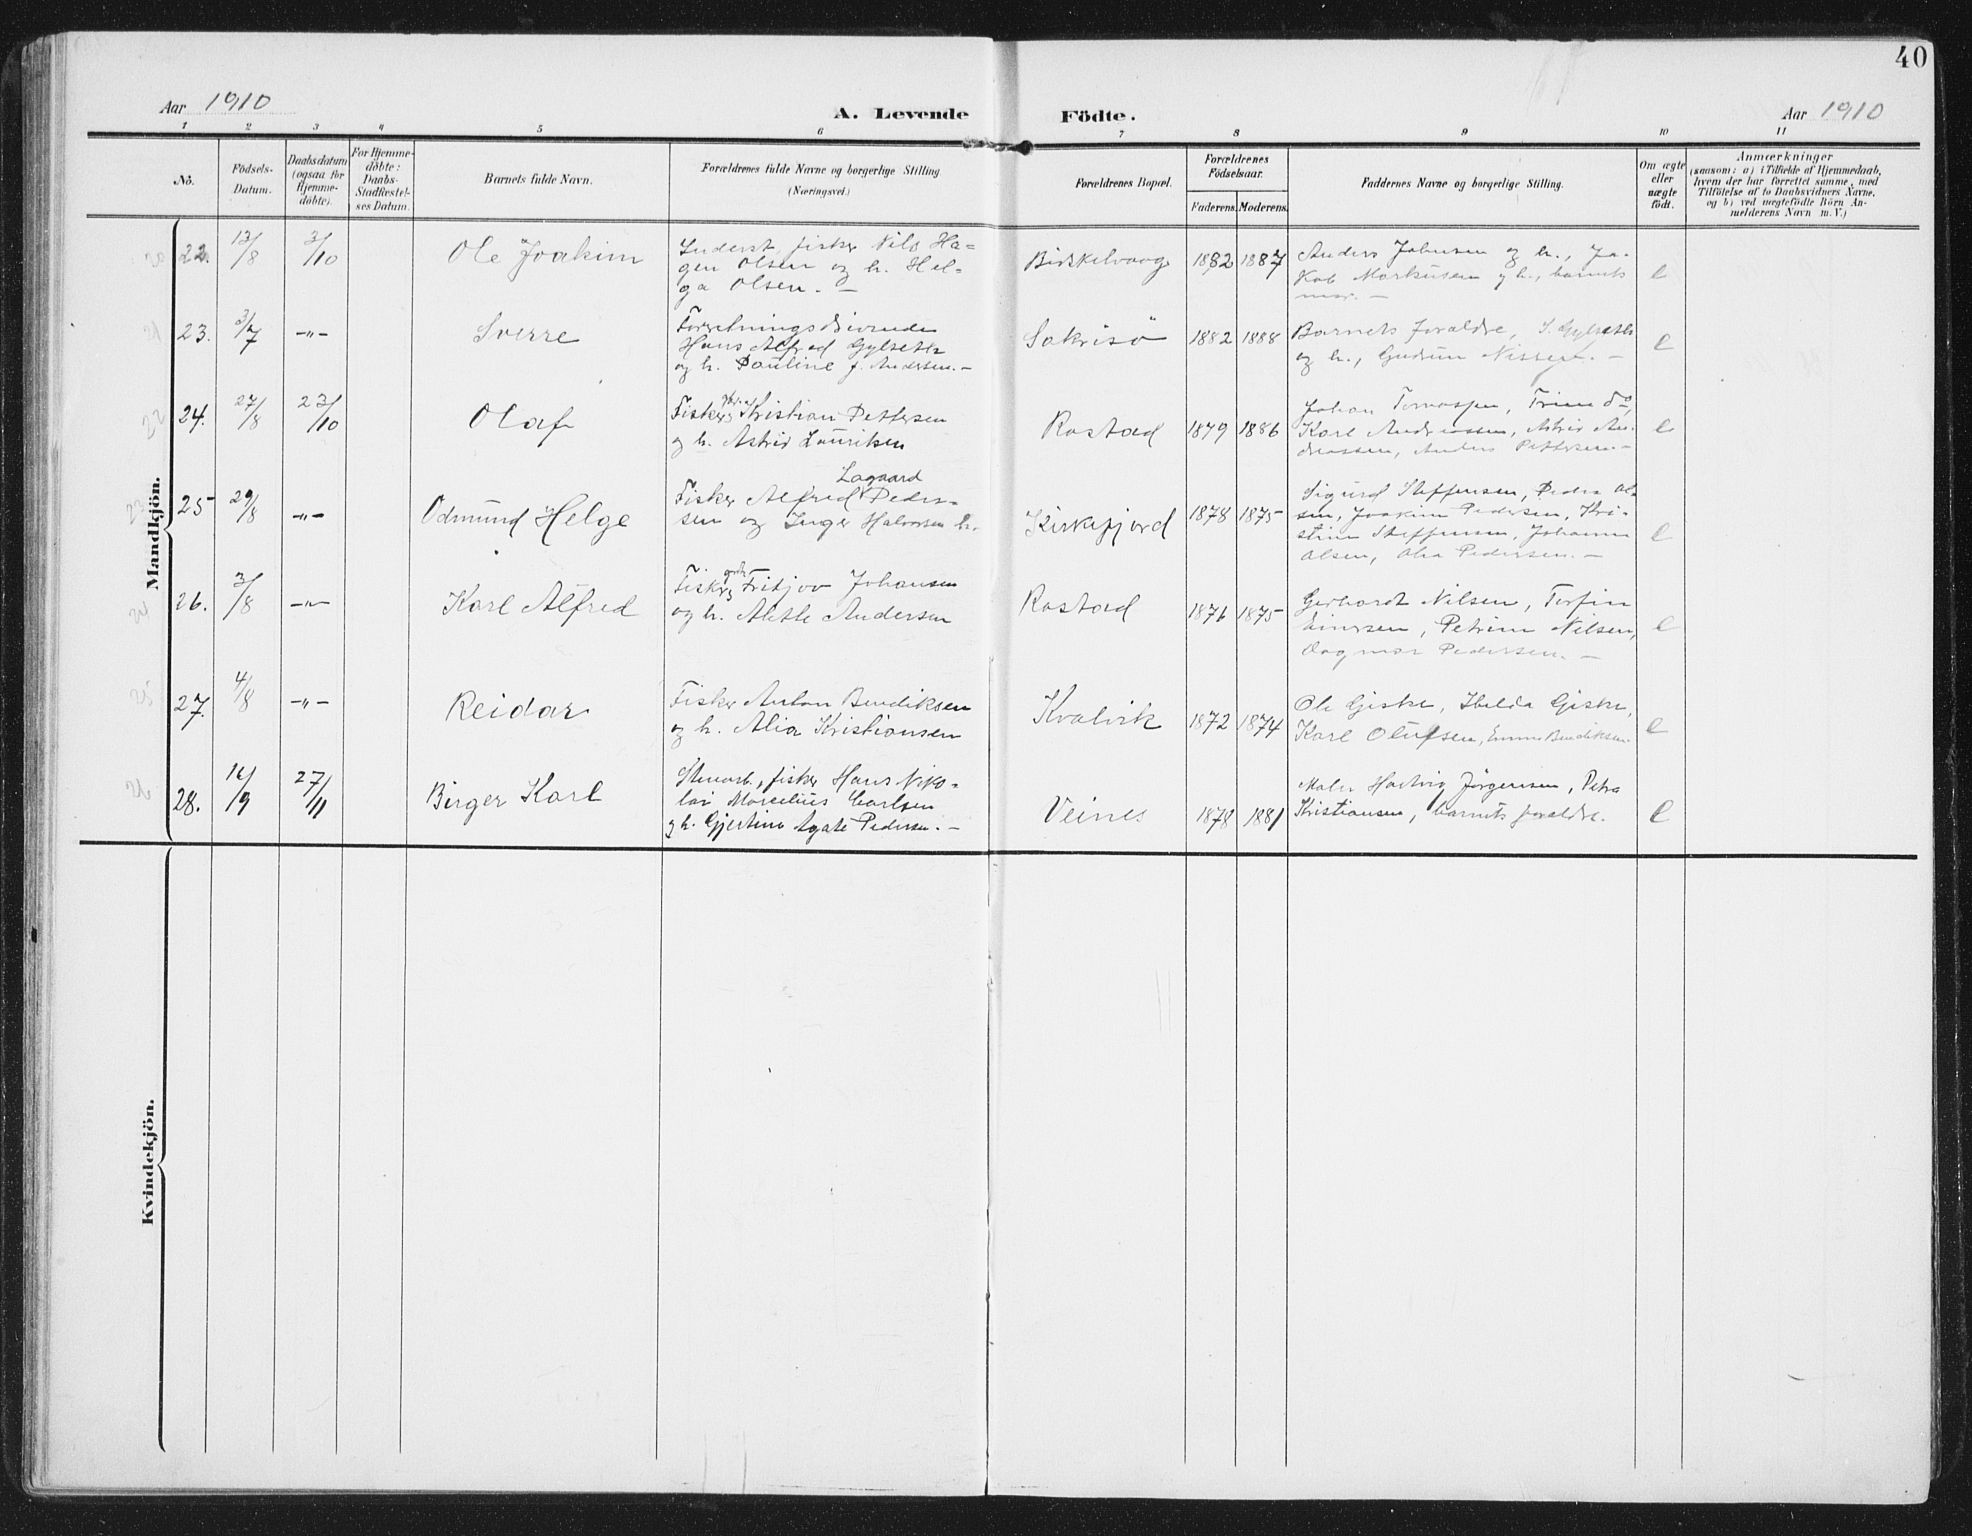 40
Aar 1910
A. Levende Födte.
Aar 1910
1 2 3 4 5 6 7 8 9 10 11
No.
Födsels-
Datum.
Daabsdatum
(ogsaa for
Hjemme-
döbte).
For Hjemme-
döbte:
Daabs-
Stadfæstel-
ses Datum.
Barnets fulde Navn.
Forældrenes fulde Navne og borgerlige Stilling
(Næringsvei.)
Forældrenes Bopæl.
Forældrenes
Födselsaar.
Faderens. Moderens.
Faddernes Navne og borgerlige Stilling.
Om ægte
eller
uægte
födt.
Anmærkninger
(saasom: a) i Tilfælde af Hjemmedaab,
hvem der har forrettet samme, med
Tilföielse af to Daabsvidners Navne,
og b) ved uægtefödte Börn An-
melderens Navn m. V.)
Mandkjön.
20
22. 13/8 3/10 Ole Joakim
Inderst, fisker Nils Ha-
gen Olsen og h. Hel-
ga Olsen. —
1882 1887
Anders Johnsen og h., Ja-
kob Markusen og h., barnets
mor. —
e
21
23. 3/7 —"— Sverre
Forretningsdrivende
Hans Alfred Gylseth
og h. Pauline f. Andersen. —
Sakrisö
1882 1888
Barnets foraldre, S. Gylseth
og h., Gudrun Nissen. —
e
22
24. 27/8 23/10 Olaf
Fisker Kristian Pettersen
og h. Astrid Lauriksen
Rostad
1879 1886
Johan Tomassen, Trine do,
Karl Andreassen, Astrid An-
dreassen, Anders Pettersen. —
e
23
25 29/8 —"— Odmund Helge
Lagaard
Fisker Alfred Peder-
sen og Inger Halvorsen h.
Kirkefjord
1878 1875
Sigurd Steffensen, Peder Ol-
sen, Joakim Pedersen, Kri-
stine Steffensen, Johanna
Olsen, Olea Pedersen. —
e
24
26. 3/8 —"— Karl Alfred
Fisker Fritjov Johansen
og h. Alette Andersen
Rostad
1876 1875
Gerhardt Nilsen, Torfin
Einarsen, Petrine Nilsen,
Dagmar Pedersen. —
e
25
27. 4/8 —"— Reidar
Fisker Anton Bendiksen
og h. Alia Kristiansen
Kvalvik
1872 1874
Ole Giske, Hilda Giske,
Karl Olufsen, Emma Bendiksen.
e
26
28. 16/9 27/11 Birger Karl
fisker Hans Niko-
lai Marcelius Carlsen
og h. Gjertine Agate Pedersen. —
Veines
1878 1881
Maler Hartvig Jörgensen, Petra
Kristiansen, barnets foraldre.
e
Kvindekjön.